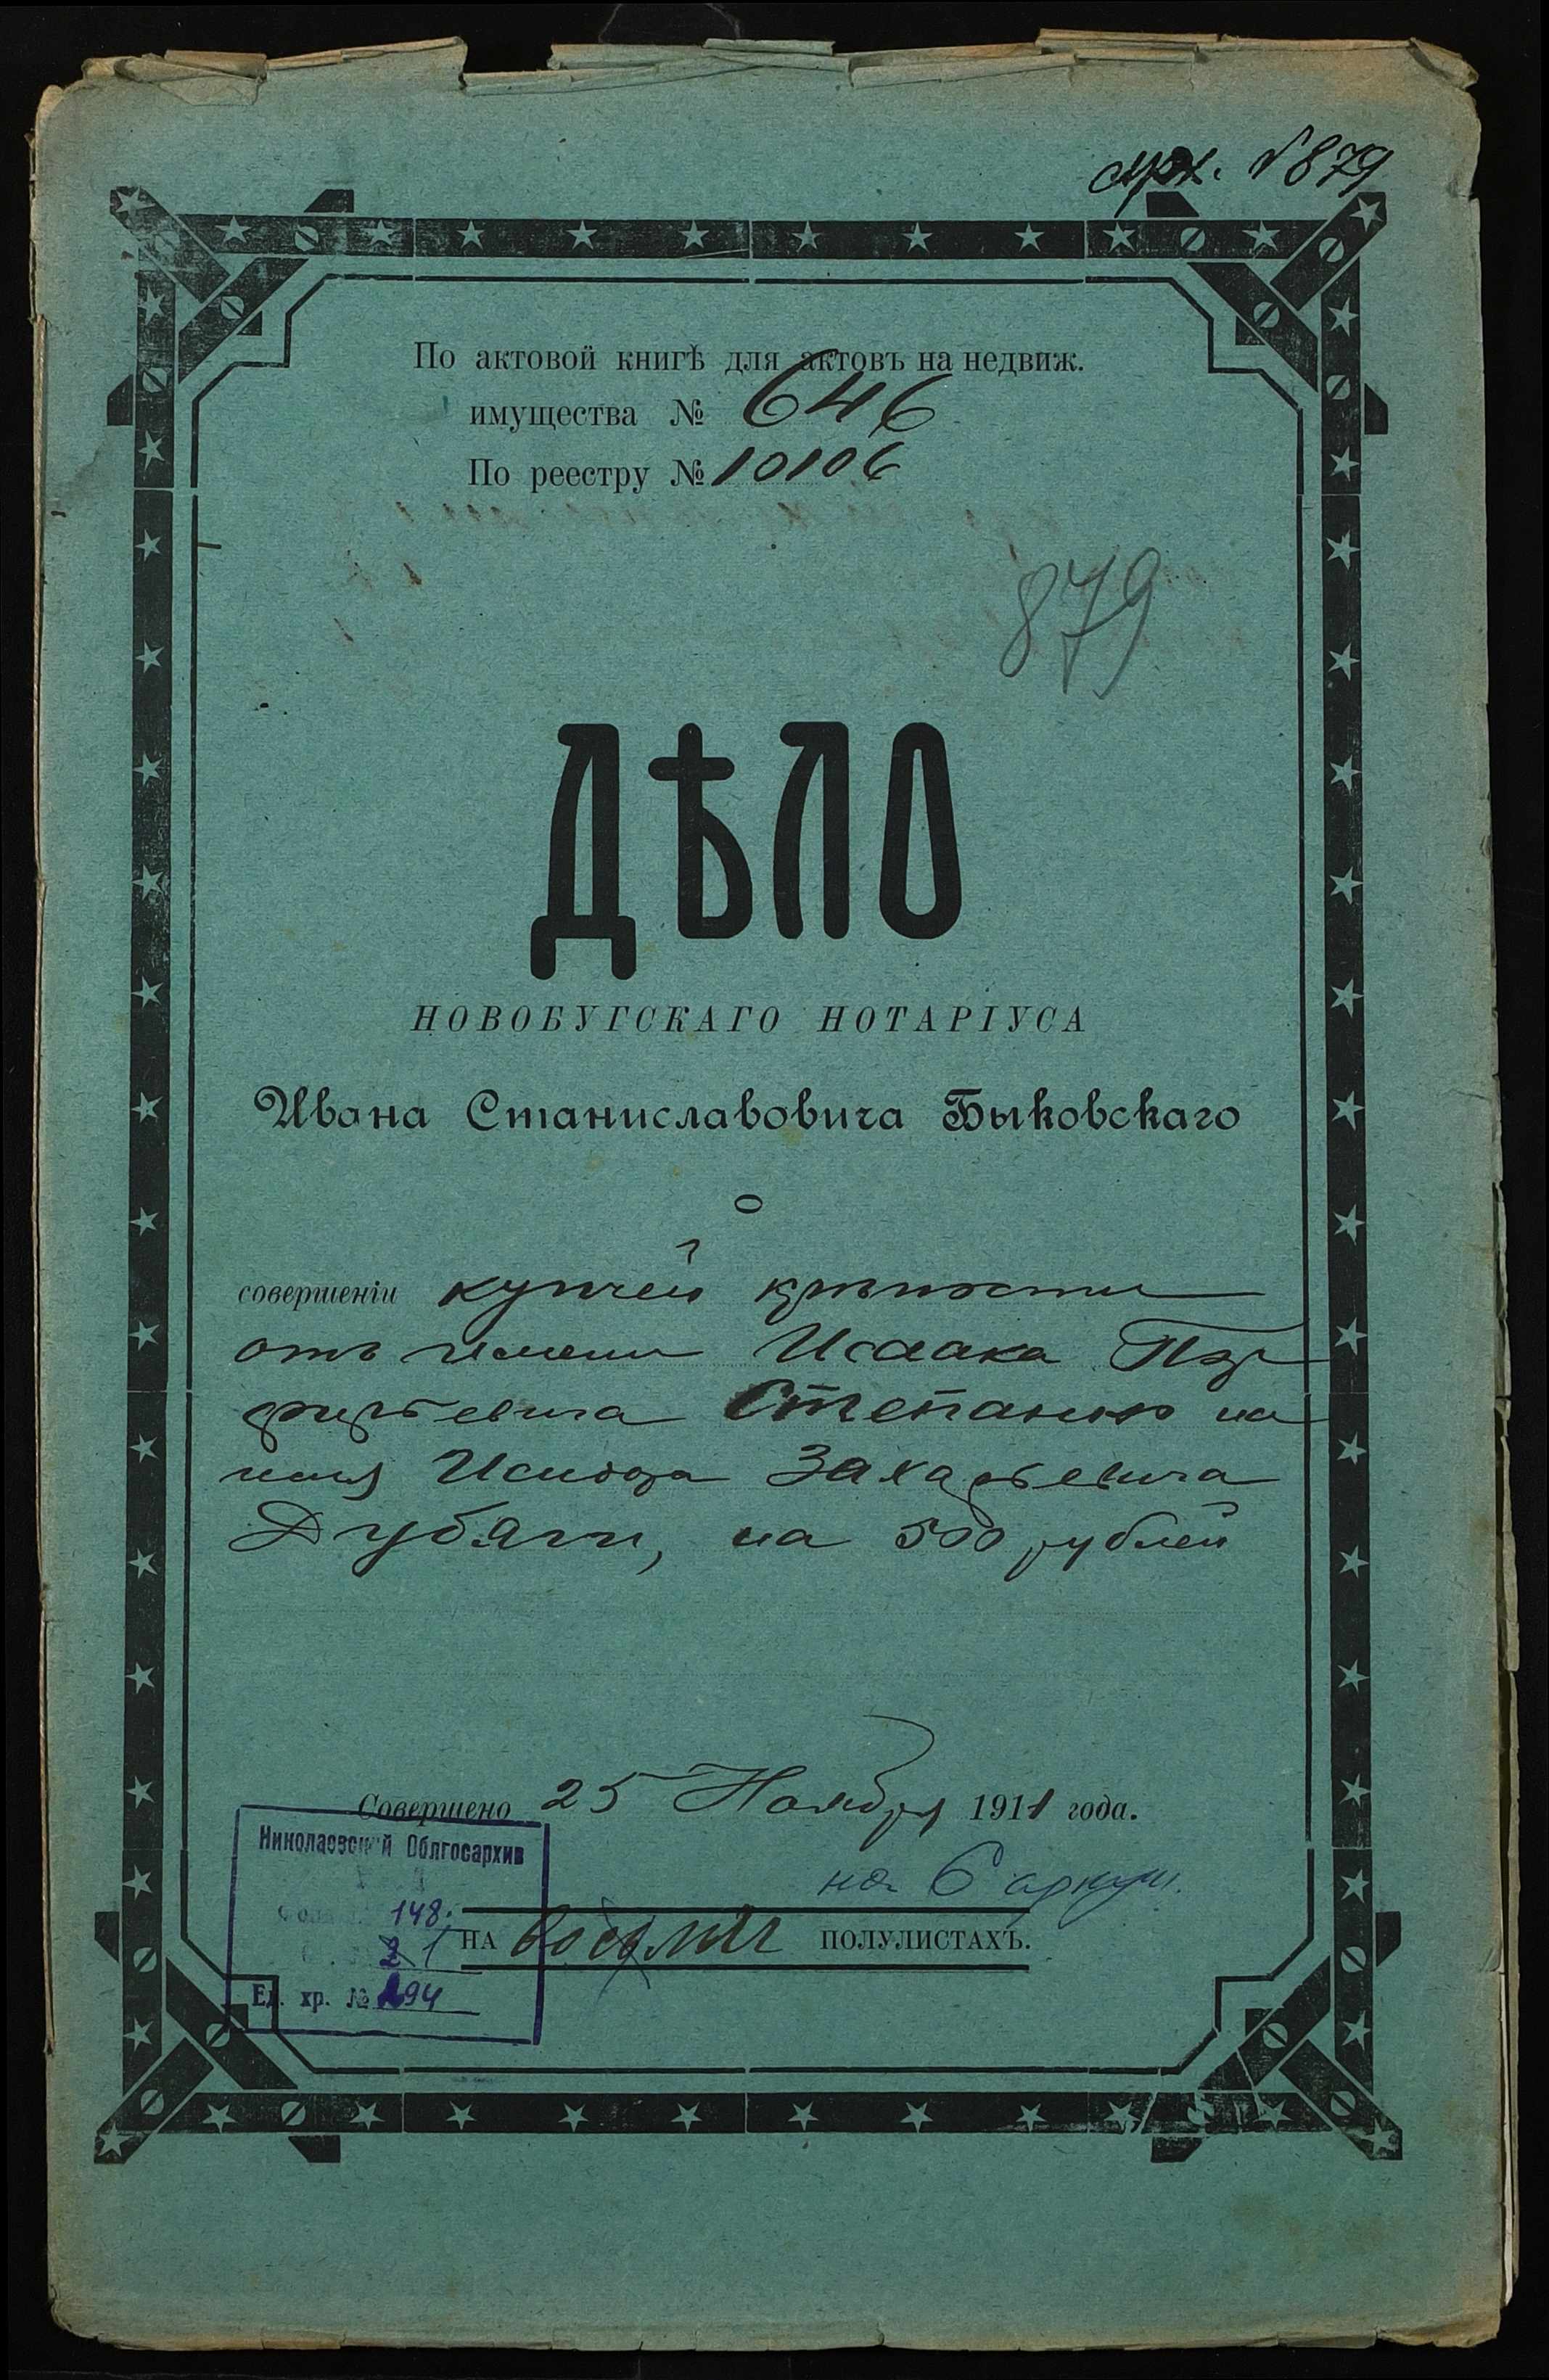 арх. №879
По актовой книгѣ для актовъ на недвиж.
имущества № 646
По реестру № 10106
879
ДѢЛО
НОВОБУГСКАГО НОТАРІУСА
Ивана Станиславовича Быковскаго
О
совершеніи купчей крѣпости
отъ имени Исаака Пор
фирьевича Степаню на
имя Исидора Захарьевича
Дубяги, на 500 рублей
Совершено 25 Ноября 1911 года.
Николаевский Облгосархив
148
на 6 аркуш.
1
НА восьми ПОЛУЛИСТАХЪ.
Ед. хр. № 294